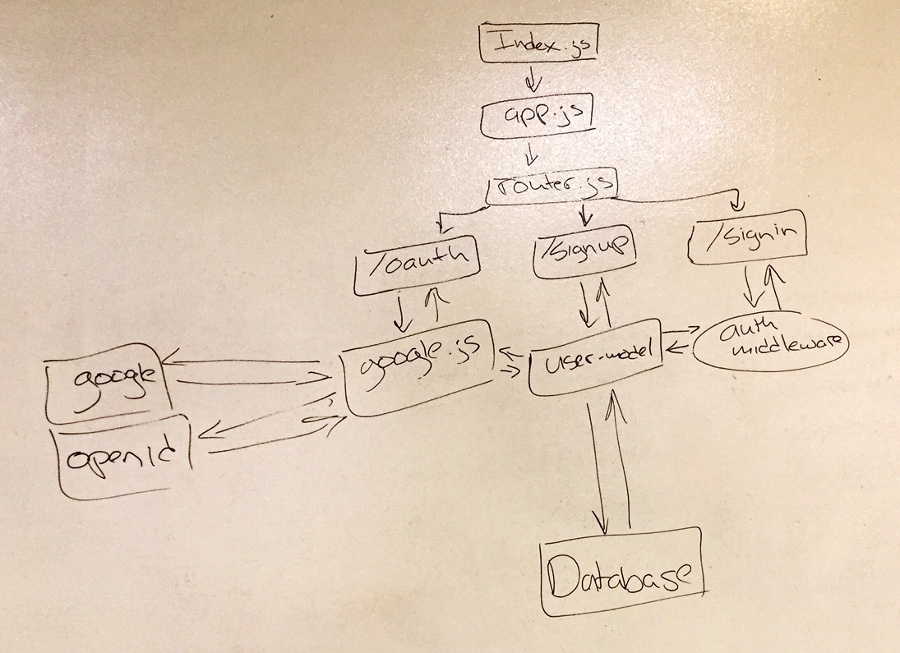 Index.js
app.js
router.js
/oauth
/signup
/signin
google.js
user-model
auth
middleware
google
openid
Database